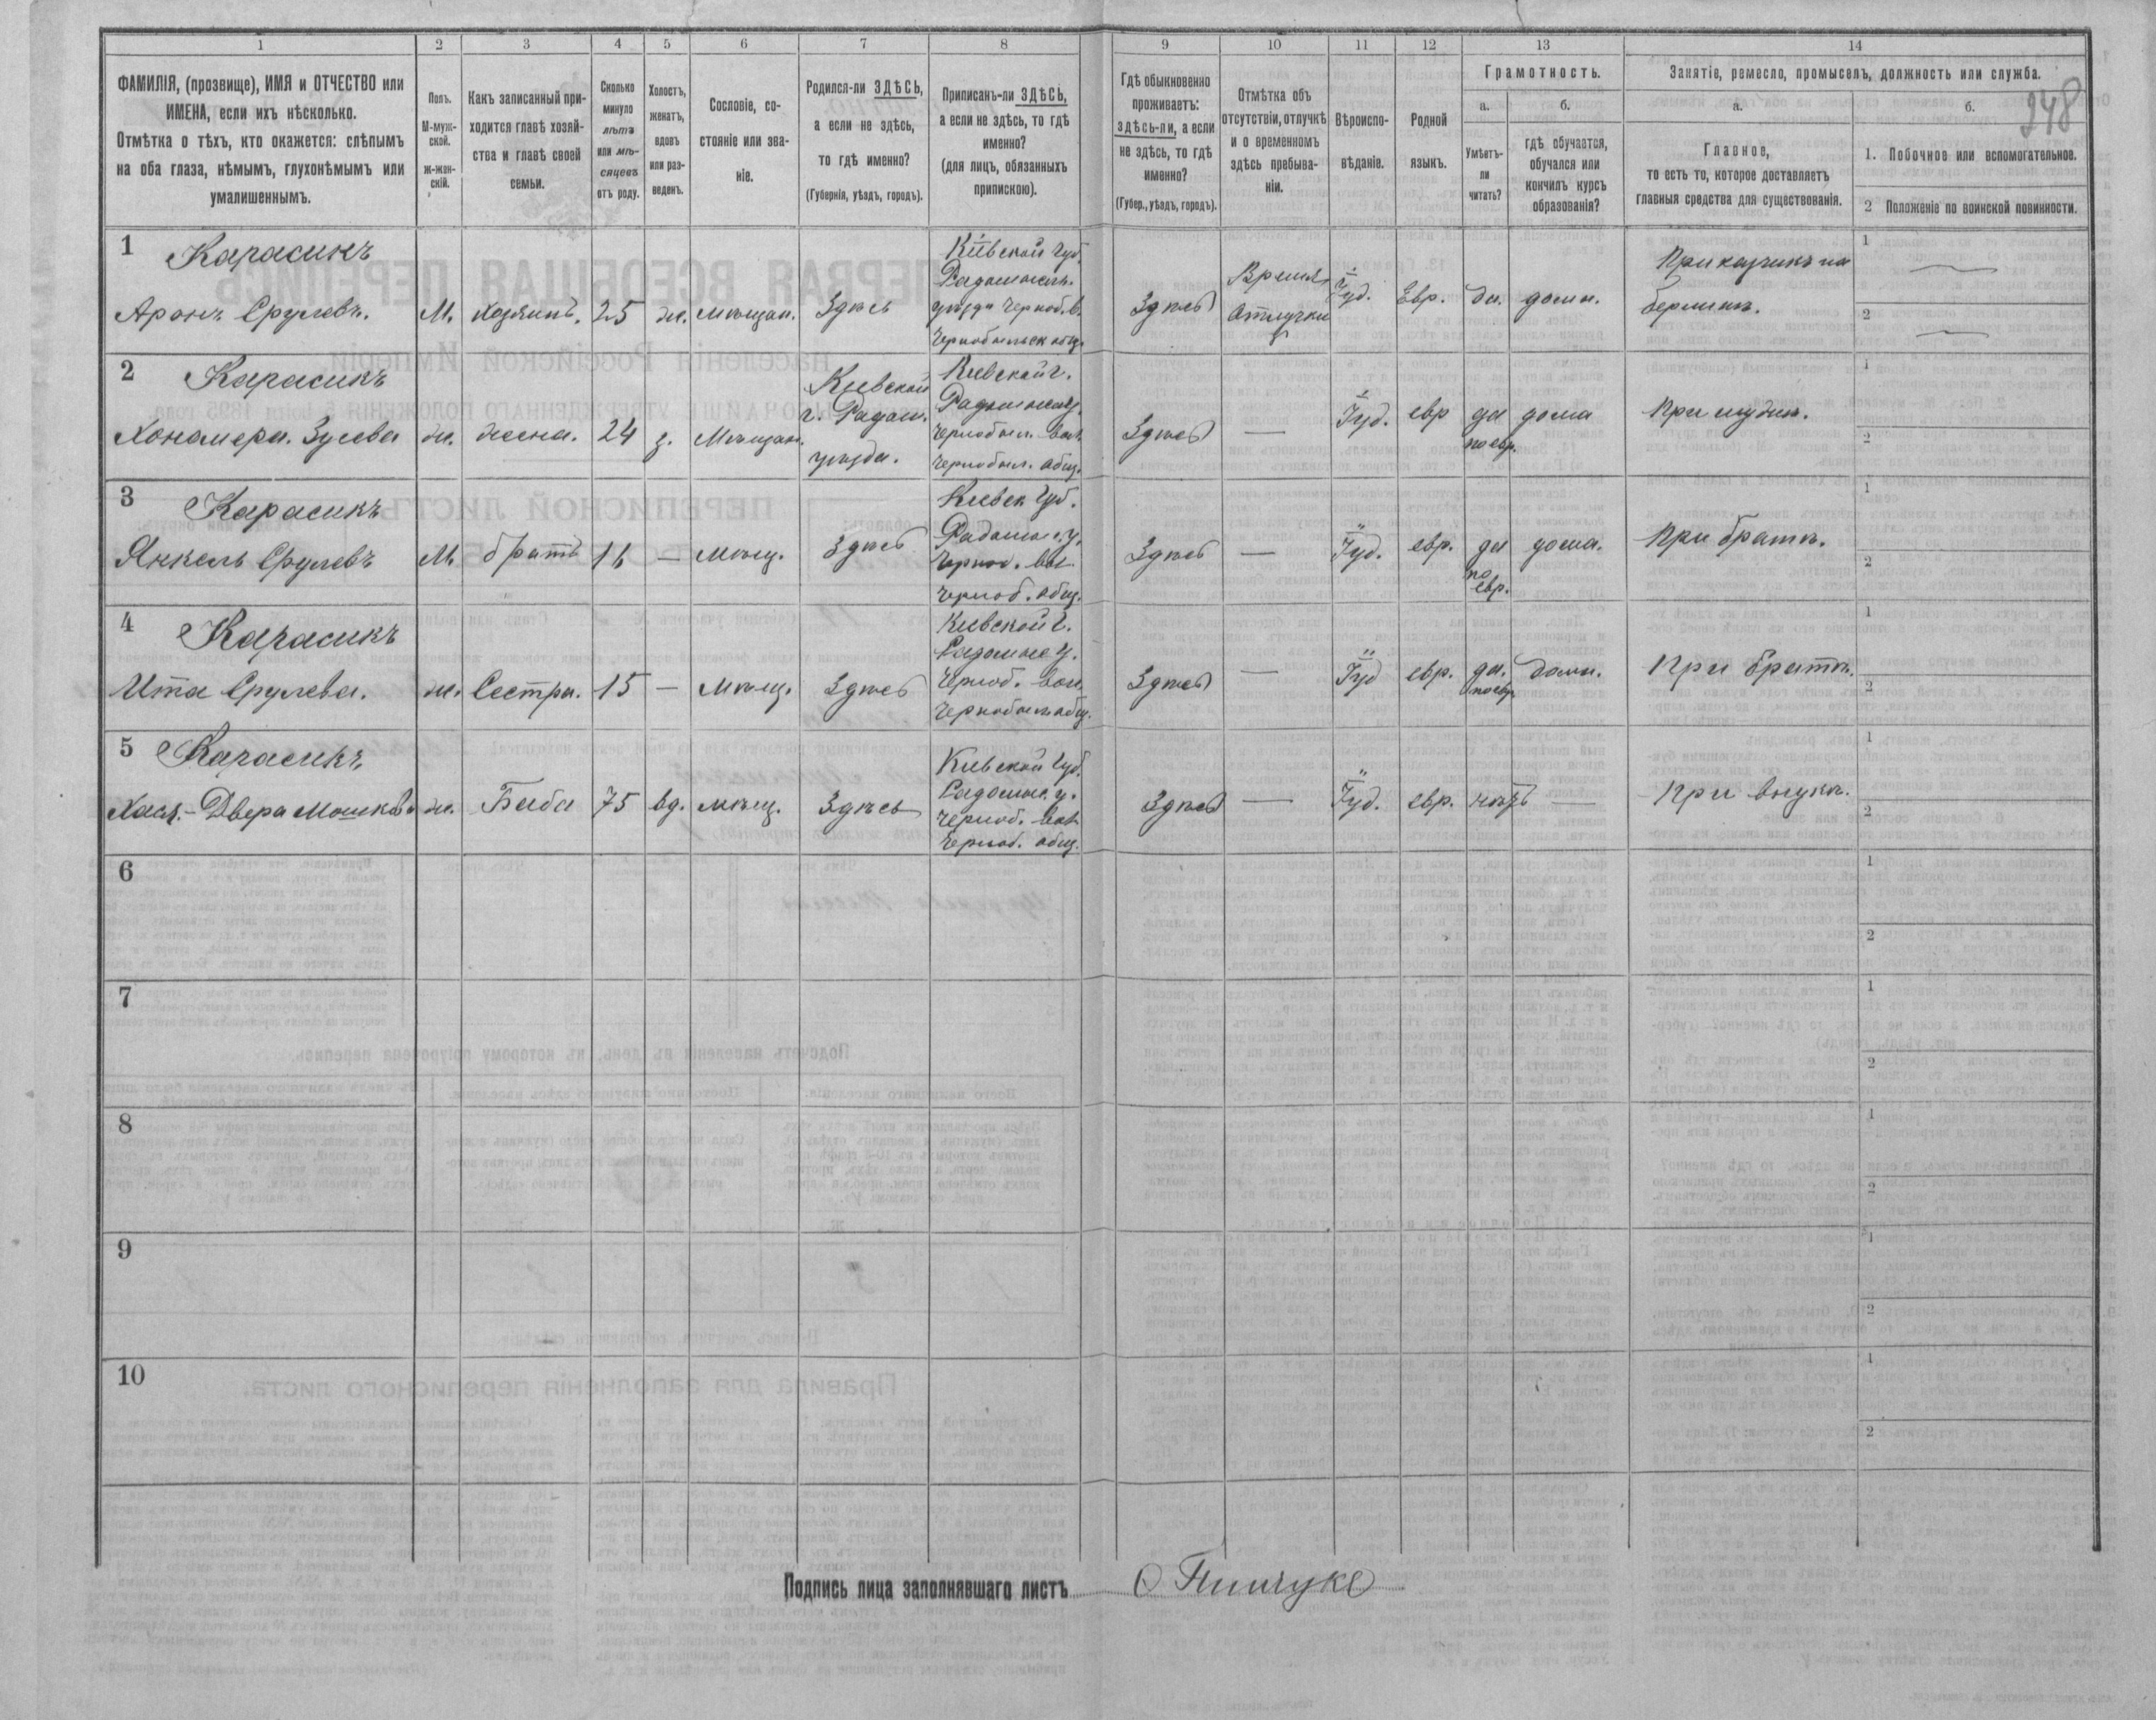 1 2 3 4 5 6 7 8 9 10 11 12 13 14
248
ФАМИЛІЯ, (прозвище), ИМЯ и ОТЧЕСТВО или
ИМЕНА, если ихъ нѣсколько.
Отмѣтка о тѣхъ, кто окажется: слѣпымъ
на оба глаза, нѣмымъ, глухонѣмымъ или
умалишеннымъ.
Полъ.
М-муж-
ской.
ж-жен-
скій.
Какъ записанный при-
ходится главѣ хозяй-
ства и главѣ своей
семьи.
Сколько
минуло
лѣтъ
или мѣ-
сяцевъ
отъ роду.
Холостъ,
женатъ,
вдовъ
или раз-
веденъ.
Сословіе, со-
стояніе или зва-
ніе.
Родился-ли ЗДѢСЬ,
а если не здѣсь,
то гдѣ именно?
(Губернія, уѣздъ, городъ).
Приписанъ-ли ЗДѢСЬ,
а если не здѣсь, то гдѣ
именно?
(для лицъ, обязанныхъ
припискою).
Гдѣ обыкновенно
проживаетъ:
здѣсь-ли, а если
не здѣсь, то гдѣ
именно?
(Губер., уѣздъ, городъ).
Отмѣтка объ
отсутствіи, отлучкѣ
и о временномъ
здѣсь пребыва-
ніи.
Вѣроиспо-
вѣданіе.
Родной
языкъ.
Грамотность.
а.
Умѣетъ-
ли
читать?
б.
гдѣ обучается,
обучался или
кончилъ курсъ
образованія?
Занятіе, ремесло, промыселъ, должность или служба.
а.
Главное,
то есть то, которое доставляетъ
главныя средства для существованія.
б.
1. Побочное или вспомогательное.
2 Положеніе по воинской повинности.
1 Карасикъ
Аронъ Срулевъ. М. хозяинъ. 25 ж. мѣщан. Здѣсь
Кіевской губ.
Радомысль.
уѣзда Черноб. в.
Чернобыльск общ.
Здѣсь
Времен.
Отлучки
Іуд. Евр. да. дома.
Прикащикъ на
берлинѣ.
1
2
2 Карасикъ
Зусева ж. жена. 24 з. Мѣщан.
Кіевской
г. Радом.
уѣзда.
Кіевской г.
Радомыс у.
Чернобыл. вол.
Чернобыл. общ.
Здѣсь — Іуд. евр да дома
по евр.
При мужѣ.
1
2
3 Карасикъ
Янкель Срулевъ М. братъ 16 — мѣщ. Здѣсь
Киевск губ.
Радомыс. у.
Черноб. вол.
Черноб. общ.
Здѣсь — Іуд. евр. да дома.
по
евр.
При братѣ.
1
2
4 Карасикъ
Ита Срулева. ж. Сестра. 15 — мѣщ. Здѣсь
Киевской г.
Радомыс у.
Черноб. вол.
Чернобыль общ.
Здѣсь — Іуд евр. да. дома.
по евр
При братѣ.
1
2
5 Карасикъ
Хася-Двера Мошкова ж. Баба 75 вд. мѣщ. Здѣсь
Киевской губ.
Радомыс. у.
Черноб. вол
Черноб. общ.
Здѣсь — Іуд. евр. нѣтъ —
При внукѣ.
1
2
6
1
2
7
1
2
8
1
2
9
1
2
10
1
2
Подпись лица заполнявшаго листъ